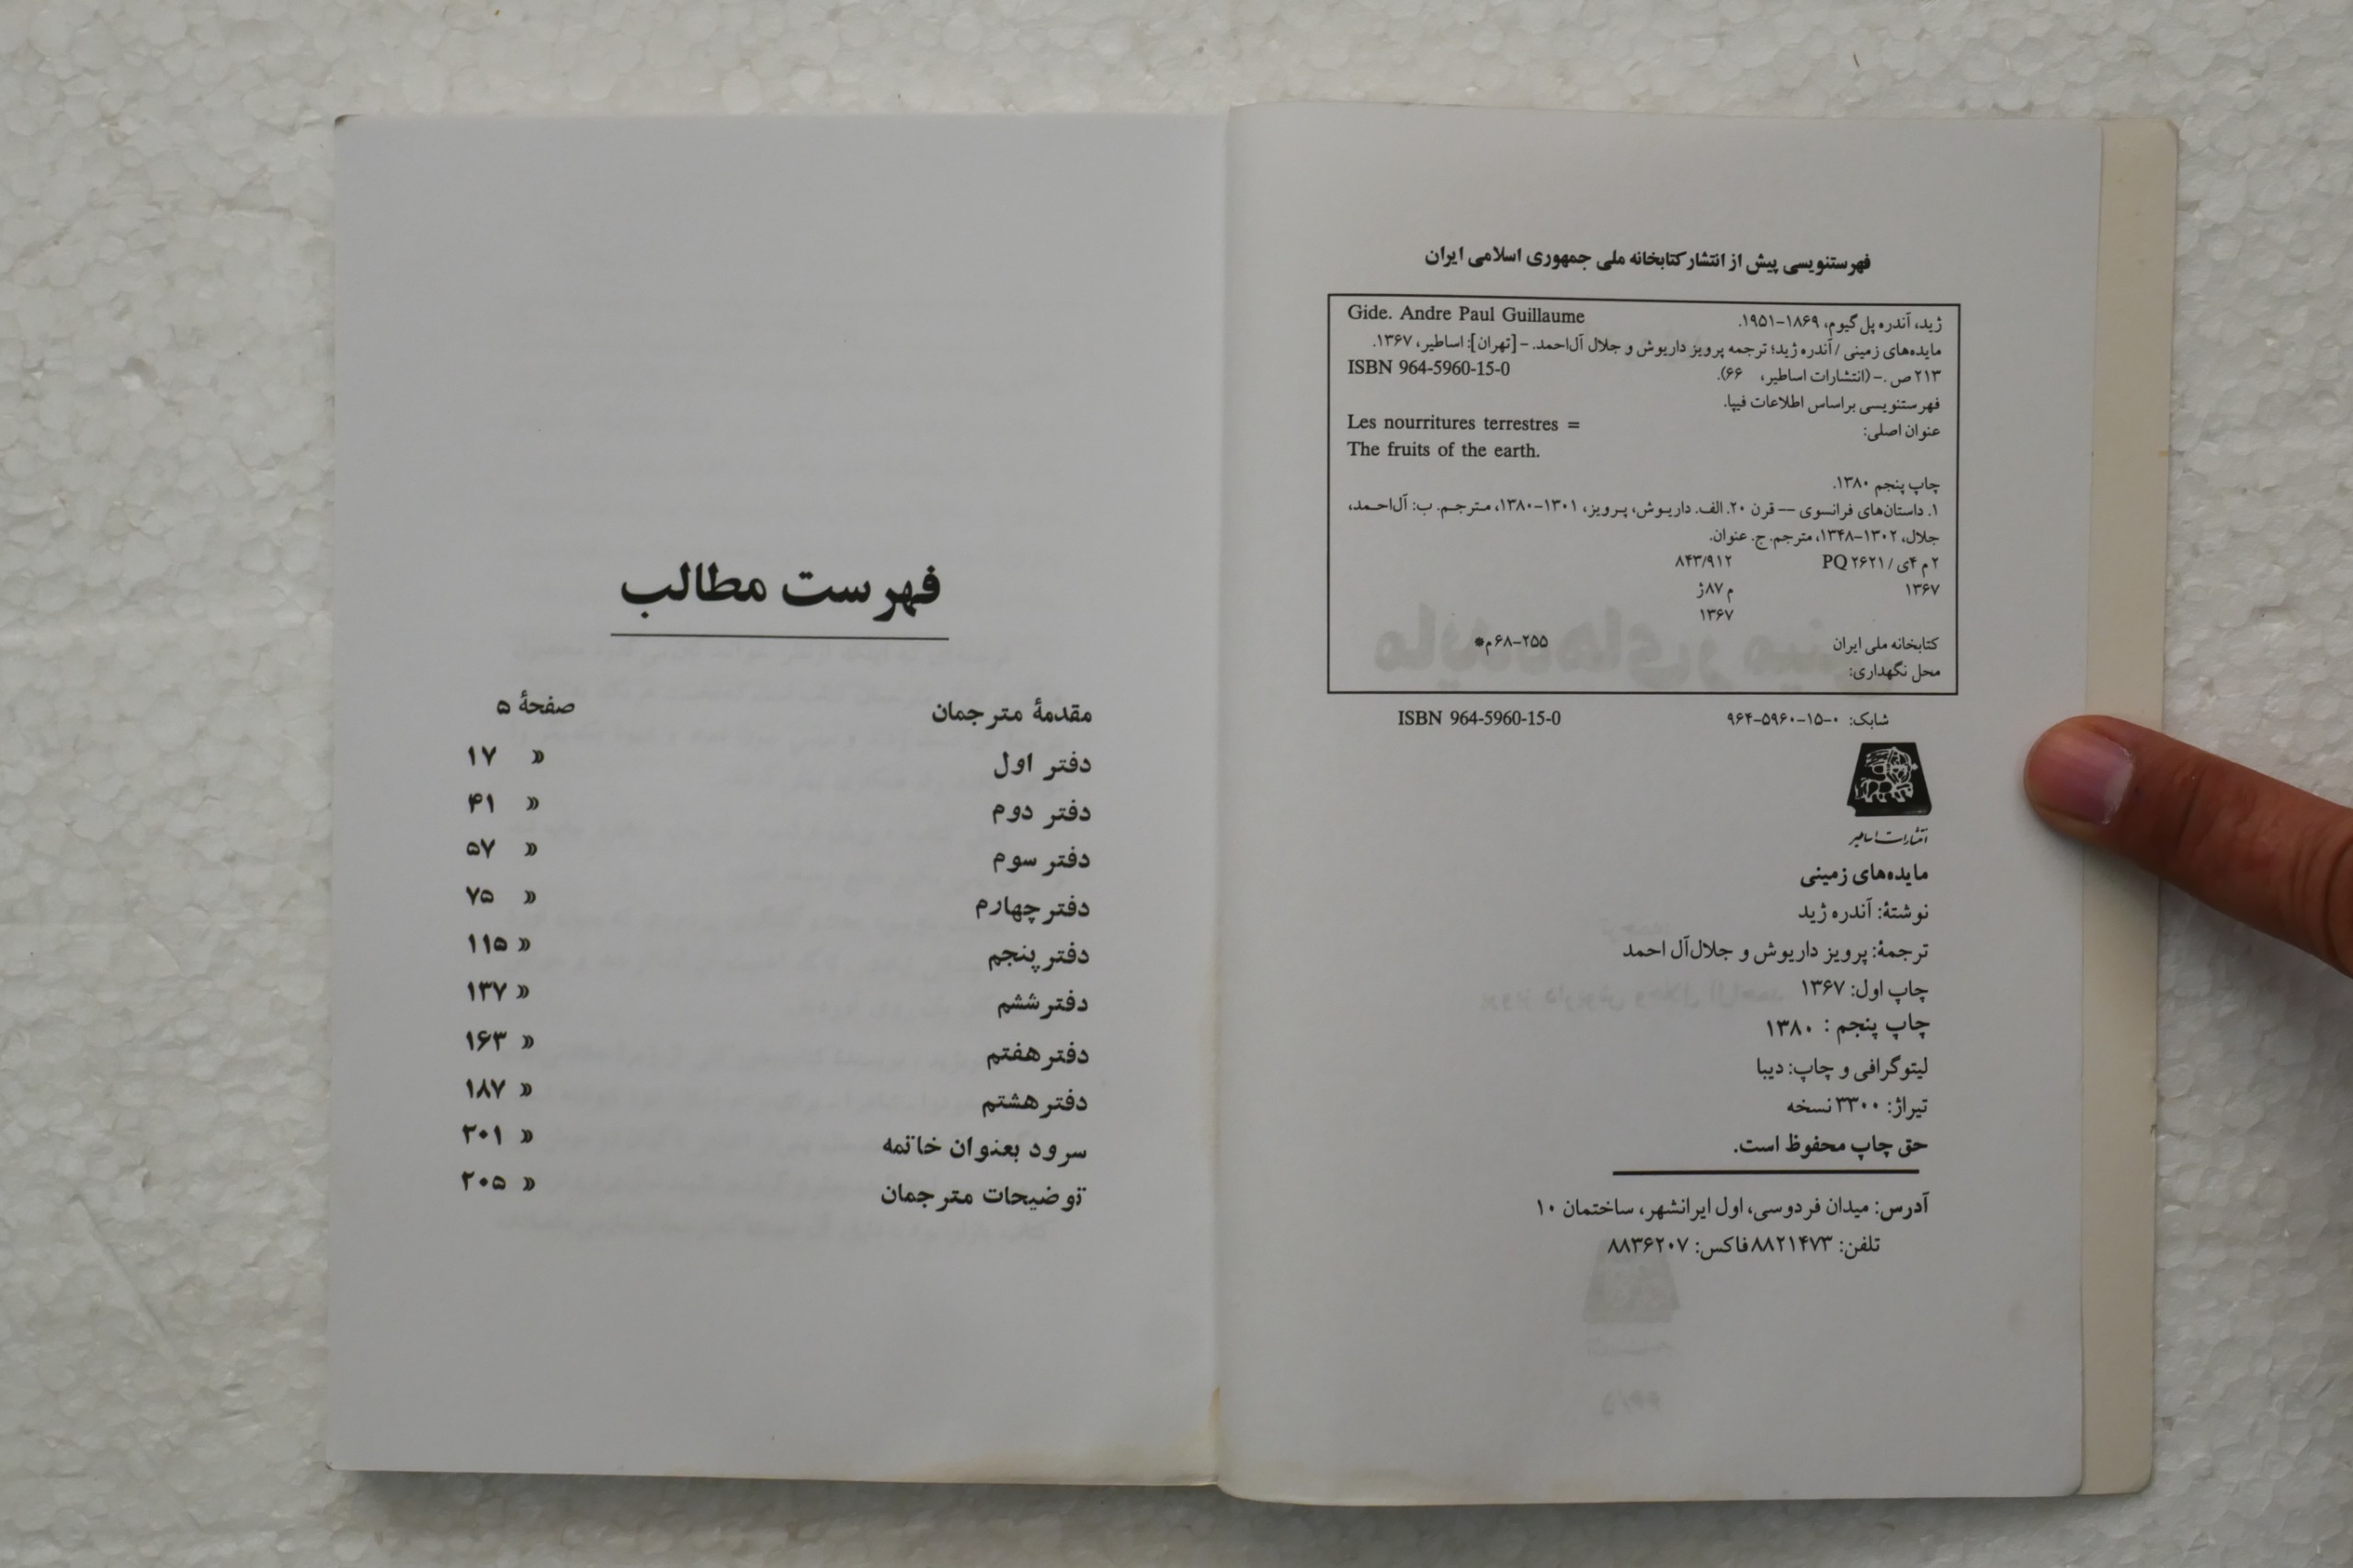 فهرستنویسی پیش از انتشار کتابخانه ملی جمهوری اسلامی ایران
ژید، آندره پل گیوم، ۱۸۶۹-۱۹۵۱. Gide. Andre Paul Guillaume
مایده‌های زمینی / آندره ژید؛ ترجمه پرویز داریوش و جلال آل‌احمد. - [تهران]: اساطیر، ۱۳۶۷.
۲۱۳ ص .- (انتشارات اساطیر، ۶۶). ISBN 964-5960-15-0
فهرستنویسی براساس اطلاعات فیپا.
عنوان اصلی: Les nourritures terrestres =
The fruits of the earth.
چاپ پنجم ۱۳۸۰.
۱. داستان‌های فرانسوی -- قرن ۲۰. الف. داریوش، پرویز، ۱۳۰۱-۱۳۸۰، مترجم. ب: آل‌احمد،
جلال، ۱۳۰۲-۱۳۴۸، مترجم. ج. عنوان.
۲ م ۴ی / PQ ۲۶۲۱ ۸۴۳/۹۱۲
۱۳۶۷ م ۸۷ژ
۱۳۶۷
کتابخانه ملی ایران ۲۵۵-۶۸م*
محل نگهداری:
شابک: ۰-۱۵-۵۹۶۰-۹۶۴ ISBN 964-5960-15-0
انتشارات اساطیر
مایده‌های زمینی
نوشتهٔ: آندره ژید
ترجمهٔ: پرویز داریوش و جلال آل احمد
چاپ اول: ۱۳۶۷
چاپ پنجم : ۱۳۸۰
لیتوگرافی و چاپ: دیبا
تیراژ: ۳۳۰۰ نسخه
حق چاپ محفوظ است.
آدرس: میدان فردوسی، اول ایرانشهر، ساختمان ۱۰
تلفن: ۸۸۲۱۴۷۳ فاکس: ۸۸۳۶۲۰۷
فهرست مطالب
مقدمهٔ مترجمان صفحهٔ ۵
دفتر اول » ۱۷
دفتر دوم » ۴۱
دفتر سوم » ۵۷
دفتر چهارم » ۷۵
دفتر پنجم » ۱۱۵
دفتر ششم » ۱۳۷
دفتر هفتم » ۱۶۳
دفتر هشتم » ۱۸۷
سرود بعنوان خاتمه » ۲۰۱
توضیحات مترجمان » ۲۰۵